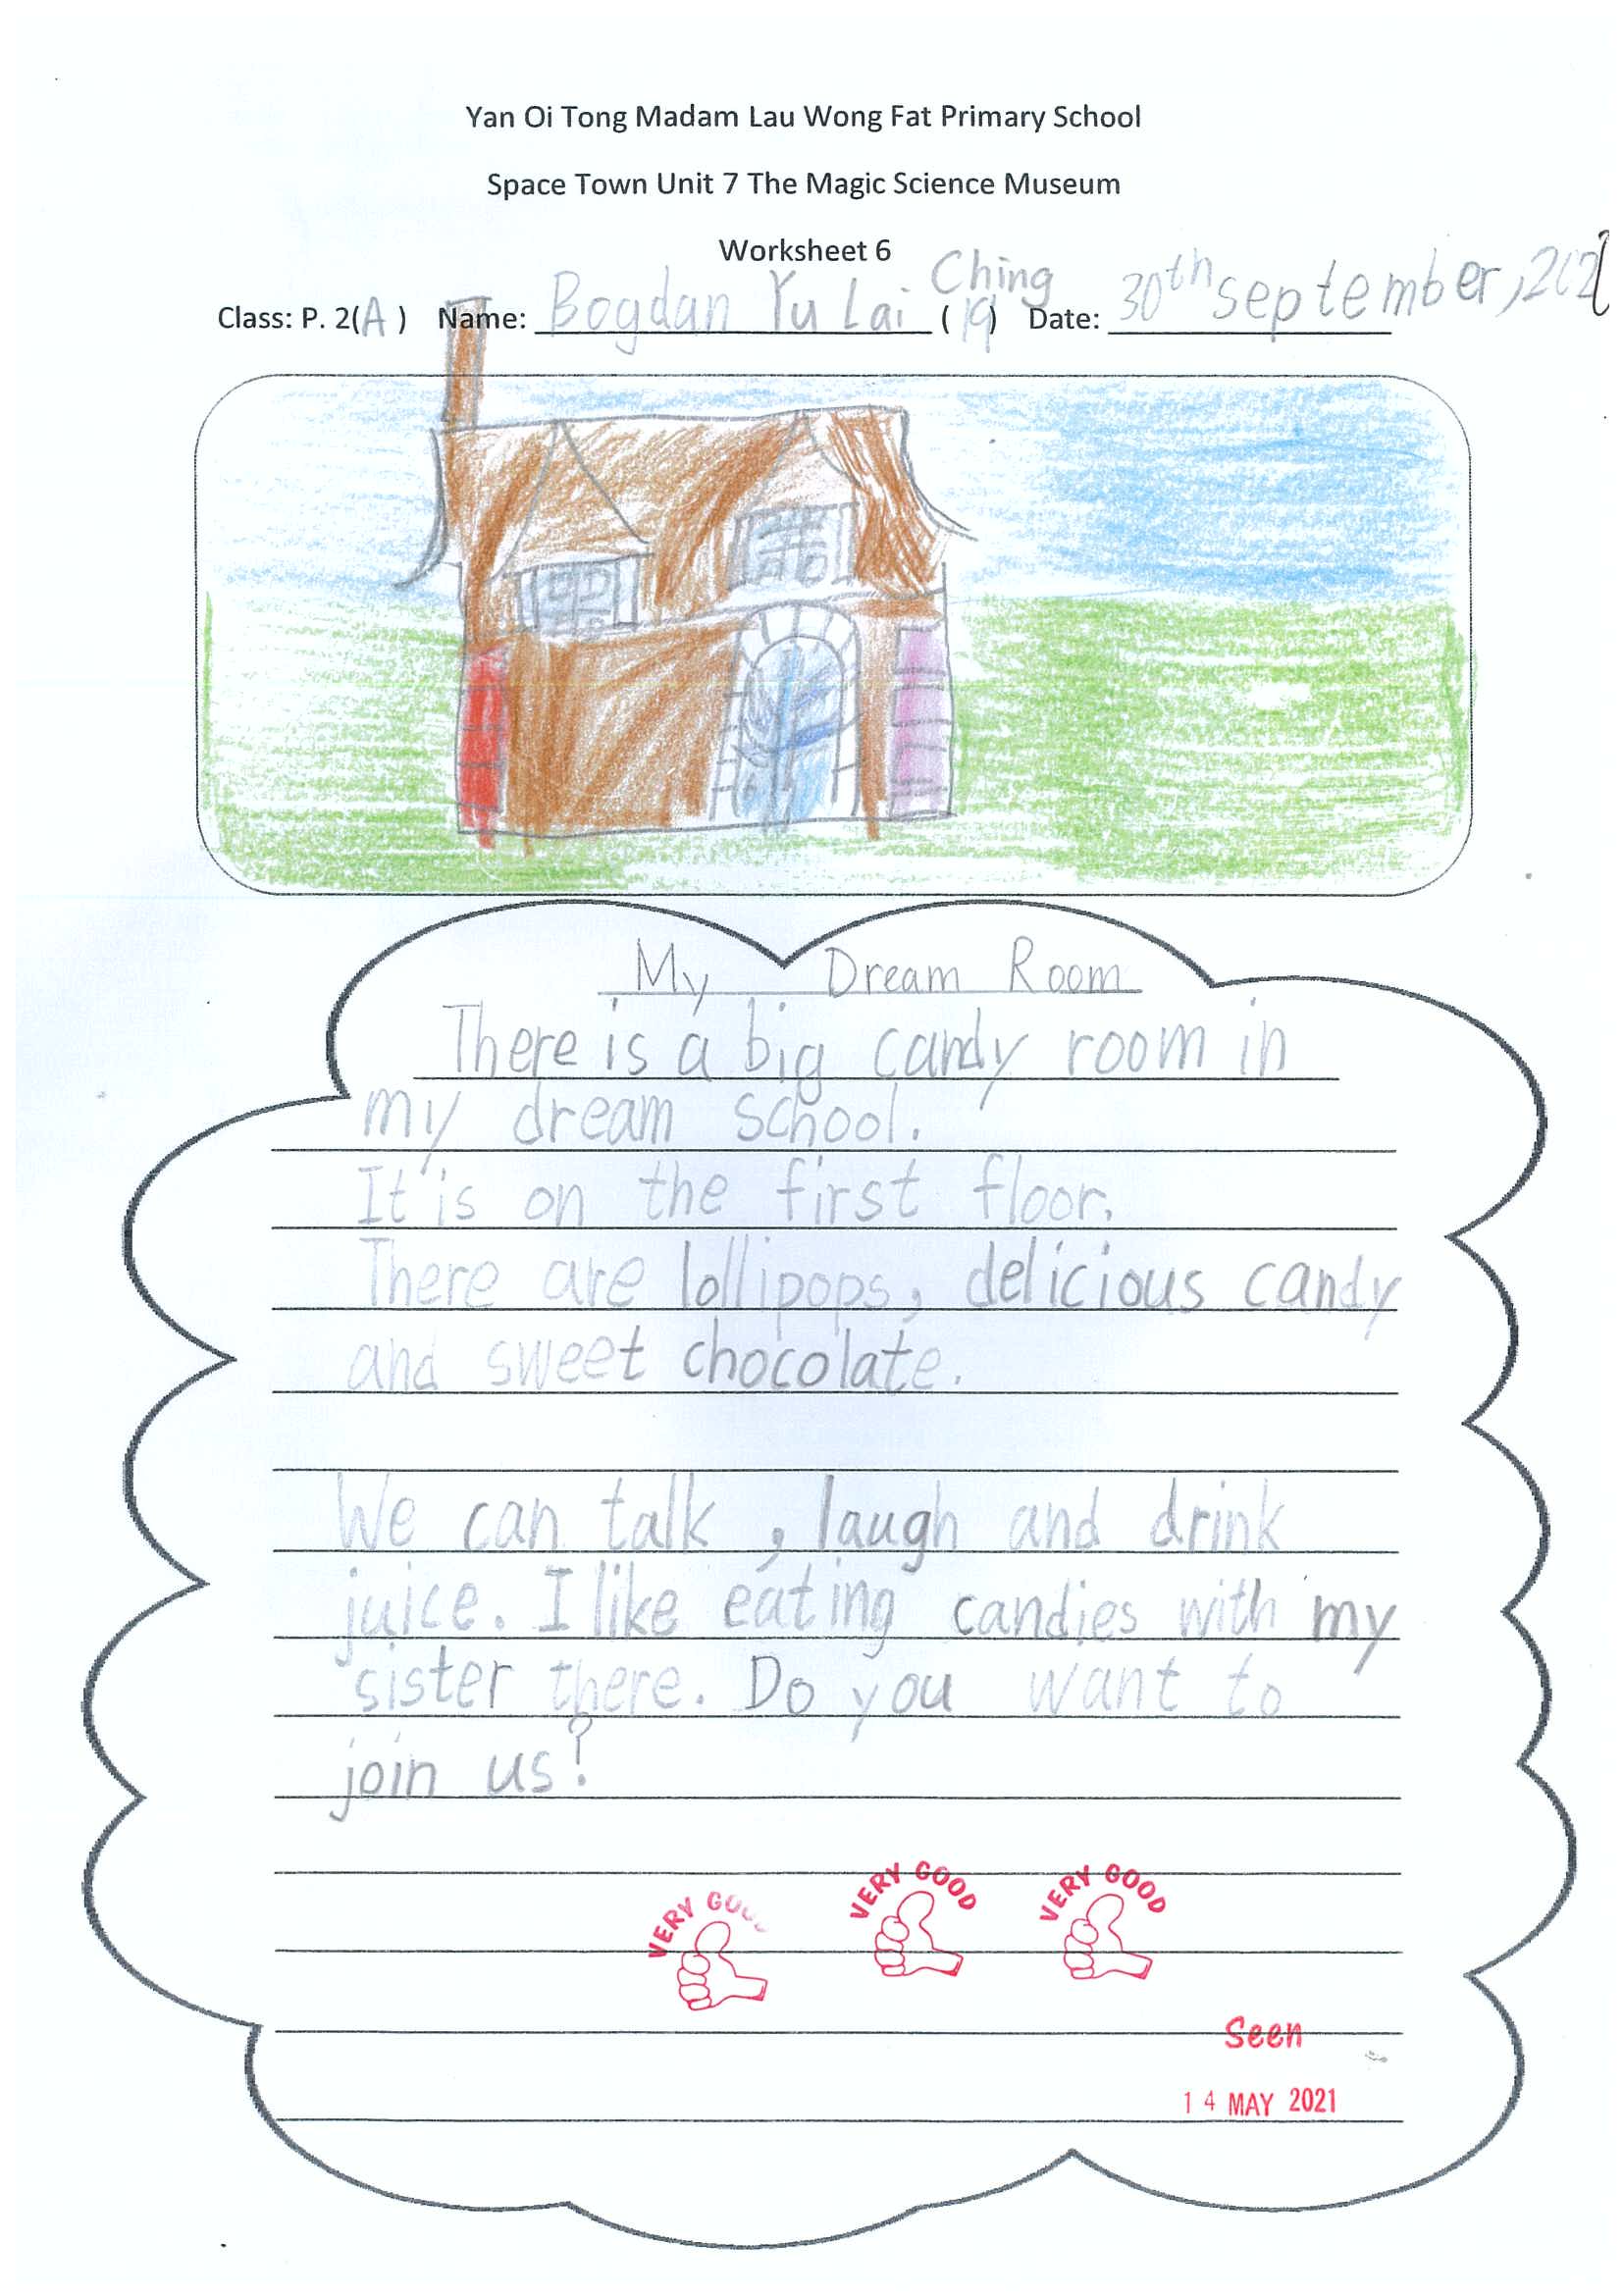 Yan Oi Tong Madam Lau Wong Fat Primary School
Space Town Unit 7 The Magic Science Museum
Worksheet 6
Class: P. 2(A) Name: Bogdan Yu Lai Ching (19) Date: 30th september, 202
My Dream Room
There is a big candy room in
my dream school.
It is on the first floor.
There are lollipops, delicious candy
and sweet chocolate.
We can talk, laugh and drink
juice. I like eating candies with my
sister there. Do you want to
join us?
VERY GOOD
VERY GOOD
VERY GOOD
Seen
14 MAY 2021